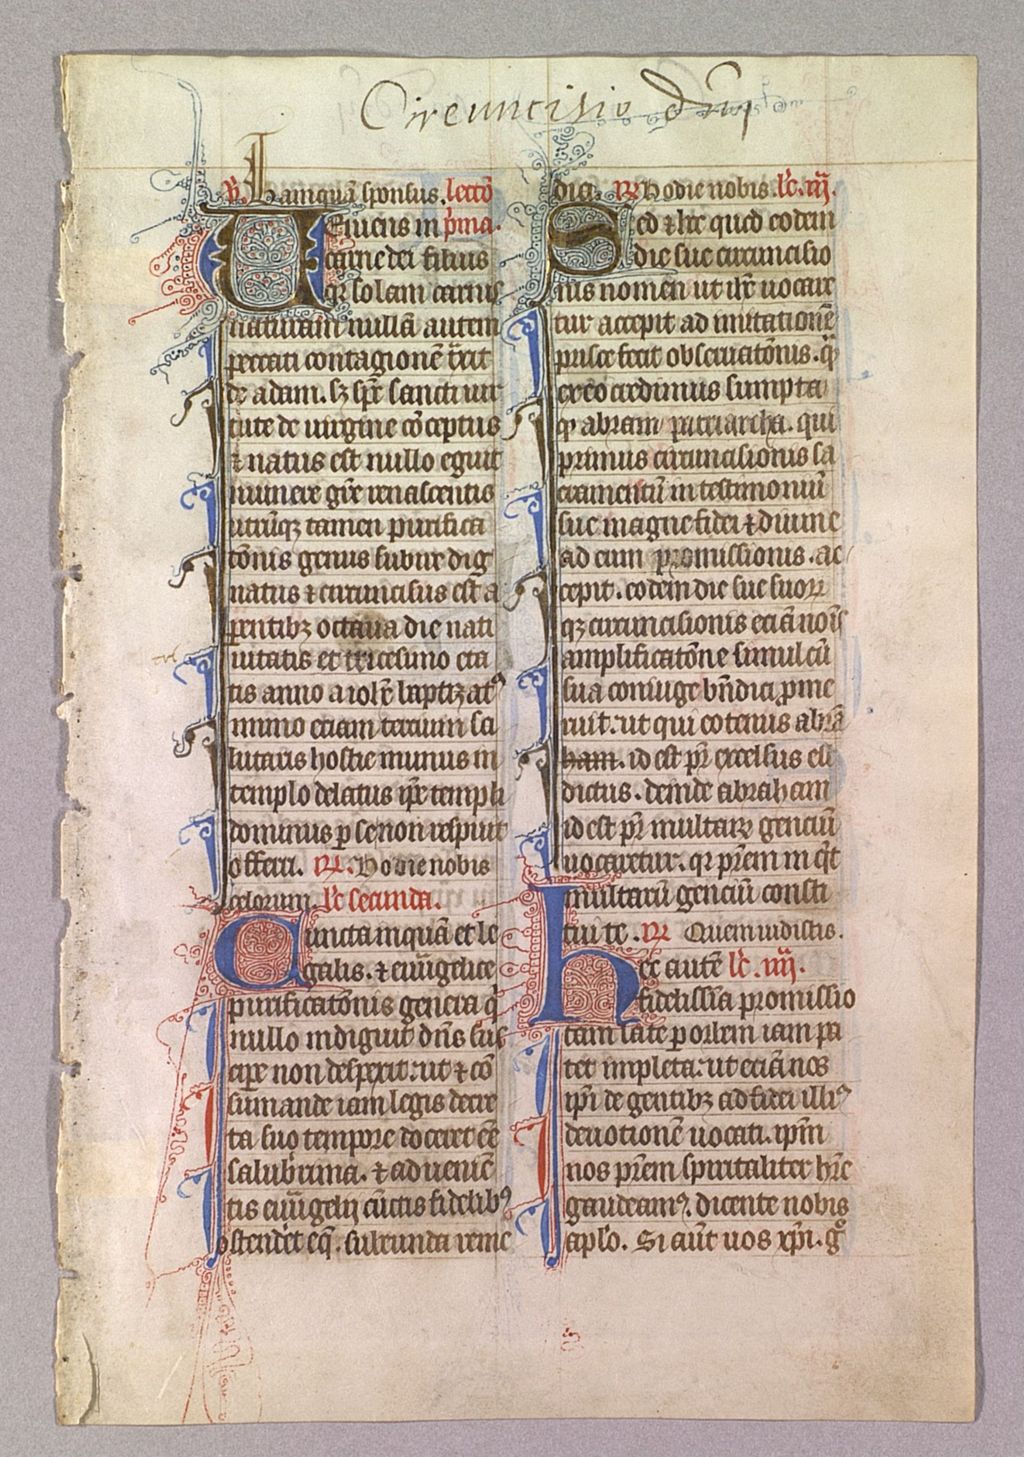 Circuncisio dni
V. Tamquã sponsus. lectõ
Veniens in p̃ma.
carne dei filius
qr̃ solam carnis
naturam nullã autem
peccati contagionẽ t̃xit
de adam. sz sp̃r sancti uir
tute de uirgine cõceptus
⁊ natus est nullo eguit
munere gr̃e renascentis
utrũqz tamen purifica
tõnis genus subire dig
natus ⁊ circuncisus est a
parentibz octaua die nati
uitatis et tricesimo eta
tis anno a ioh̃e baptizatꝰ
immo etiam tercium sa
lutaris hostie munus in
templo delatus
dominus p se non respuit
offerri. R. Hodie nobis
celorum. lc̃ secunda.
Cuncta inquã et le
galis. ⁊ euũgelice
purificatõnis genera q̃
nullo indiguit dñs sus
cipe non despexit. ut ⁊ cõ
sumande iam legis decre
ta suo tempore doceret eẽ
saluberrima. ⁊ aduenie
tis euũgelij cũctis fidelibꝰ
ostenderet eq̃. subeunda reme
dia. R. Hodie nobis. lc̃. iij.
Sed ⁊ hec quod eodem
die sue circuncisio
nis nomen ut ihc̃ uocare
tur accepit ad imitationẽ
prisce fecit obseruatõnis. q̃
ex eo credimus sumpta
qꝫ abram patriarcha. qui
primus circuncisionis sa
cramentũ in testimoniũ
sue magne fidei ⁊ diuine
ad eum promissionis. ac
cepit. eodem die sue suoꝝ
qz circuncisionis eciã nõis
amplificatõne simul cũ
sua coniuge bñdici prome
ruit. ut qui eotenus abrã
ham. id est pr̃ excelsus est
dictus. deinde abraham
id est pr̃ multaꝝ genciũ
uocaretur. qr p̃rem inq̃t
multarũ genciũ consti
tui te. R. Quem uidistis.
hec autẽ lc̃. iiij.
fidelissĩa promissio
tam late p orbem iam pa
tet impleta. ut eciã nos
ip̃i de gentibz ad fidei illiꝰ
deuotionẽ uocati. ip̃m
nos p̃rem spiritaliter hr̃e
gaudeamꝰ. dicente nobis
ap̃lo. Si aũt uos xp̃i. g̊